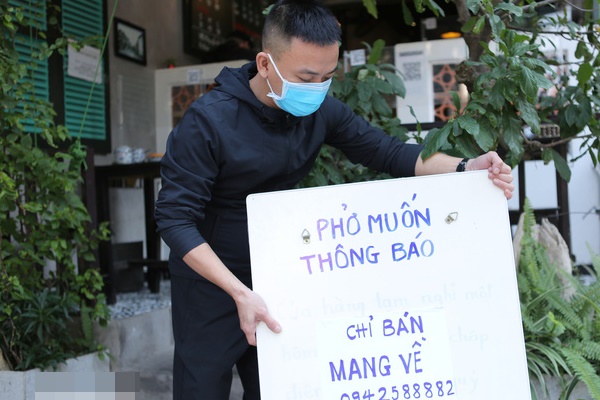 PHỞ MUỐN
THÔNG BÁO
CHỈ BÁN
MANG VỀ
0942588882